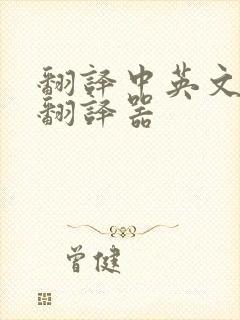 翻译中英文
翻译器
曾健